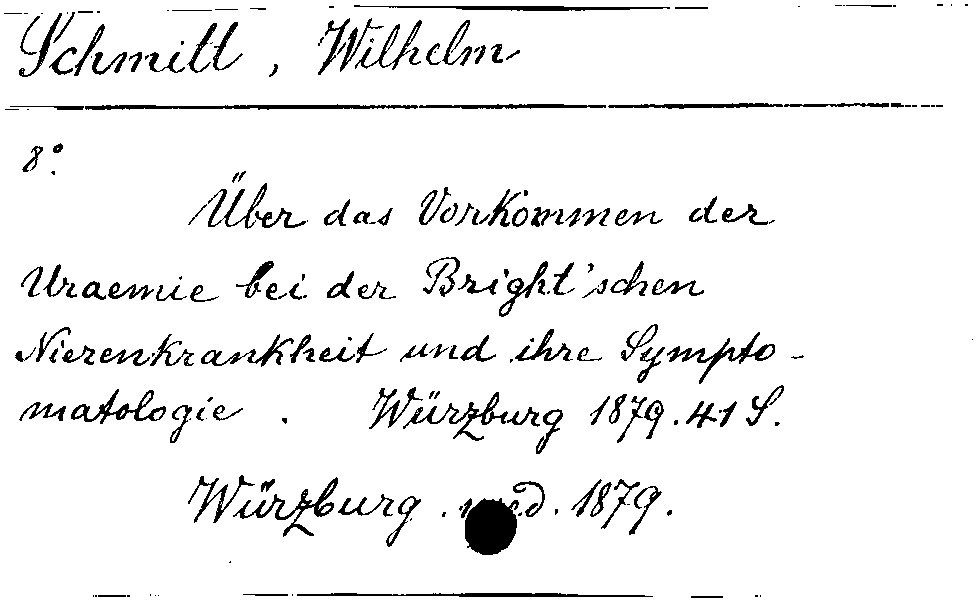 Schmitt, Wilhelm
8°.
Über das Vorkommen der
Uraemie bei der Bright'schen
Nierenkrankheit und ihre Sympto-
matologie. Würzburg 1879. 41 S.
Würzburg. med. 1879.